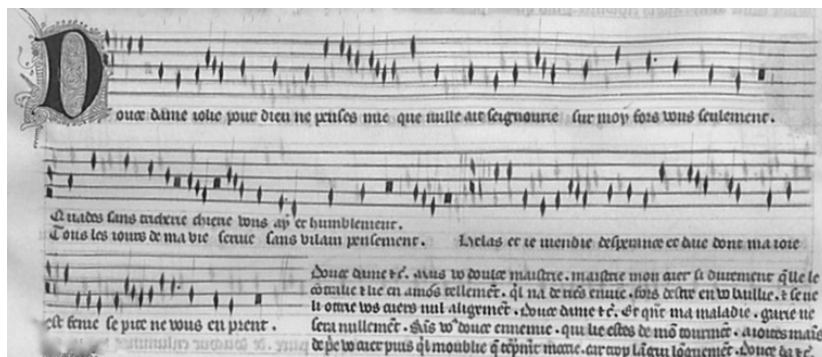 Douce dame iolie pour dieu ne penses mie que nulle ait seignourie sur moy fors vous seulement.
Quades sans tricherie chierie vous ay et humblement.
Tous les iours de ma vie seruie sans vilain pensement. Helas et ie mendie desperance et daie dont ma ioie
est fenie se pite ne vous en prent.
Douce dame &c̄. Mais vo doulce maistrie. maistrie mon cuer si durement q̄lle le
cōtralie & lie en amōs tellemēt. q̄l na de riēs enuie. fors destre en vo baillie. & se ne
li ottrie vos cuers nul aligemēt. Douce dame &c̄. Et qn̄t ma maladie. garie ne
sera nullemēt. Sās vꝰ douce ennemie. qui lie estes de mō tourmēt. a ioītes maīs
vo cuer puis q̄l moublie Douce da &c̄.